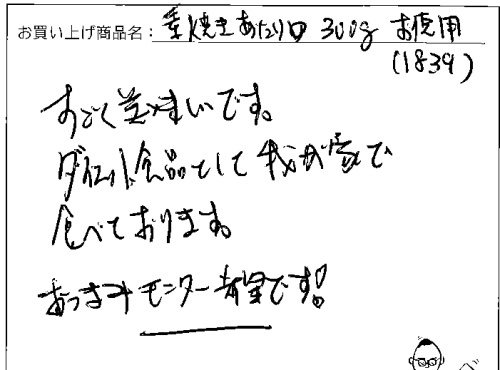 お買い上げ商品名：素焼きあたり口 300g お徳用
(1839)
すごく美味いです。
ダイエット食品として我が家で
食べております。
おつまみモニター希望です!